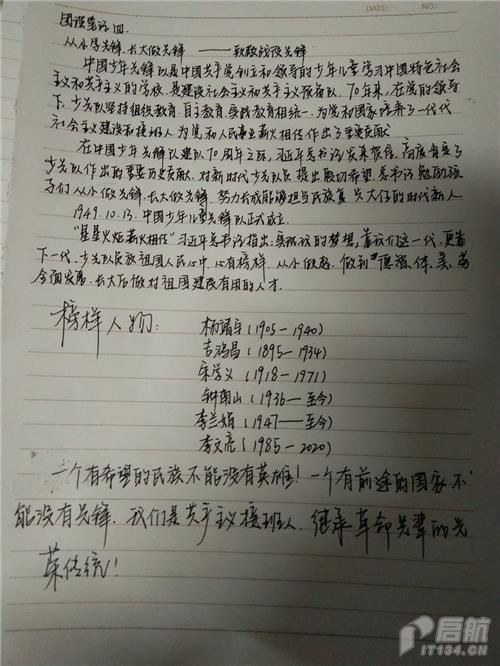 团课笔记四
DATE: NO:
从小学先锋.长大做先锋 ——致敬战疫先锋
中国少年先锋队是中国共产党创立和领导的少年儿童学习中国特色社会
主义和共产主义的学校,是建设社会主义和共产主义预备队.70年来,在党的领导
下,少先队坚持组织教育、自主教育、实践教育相统一,为党和国家培养了一代代
社会主义建设和接班人,为党和人民事业薪火相传作出了重要贡献
在中国少年先锋队建队70周年之际,习近平总书记发来贺信,高度肯定了
少先队作出的重要历史贡献.对新时代少先队员提出殷切希望.总书记勉励孩
子们从小做先锋.长大做先锋.努力长成能够担当民族复兴大任的时代新人
1949.10.13.中国少年先锋队正式成立.
"星星火炬薪火相传"习近平总书记指出:实现我们的梦想,靠我们这一代,更靠
下一代.少先队员放祖国人民心中.心有榜样.从小做起.做到"德、智、体、美、劳
全面发展.长大后做对祖国建设有用的人才.
榜样人物:
杨靖宇(1905-1940)
吉鸿昌(1895-1934)
宋学义(1918-1971)
钟南山(1936-至今)
李兰娟(1947-至今)
李文亮(1985-2020)
一个有希望的民族不能没有英雄!一个有前途的国家不
能没有先锋.我们是共产主义接班人.继承革命先辈的光
荣传统!
启航
IT134.CN